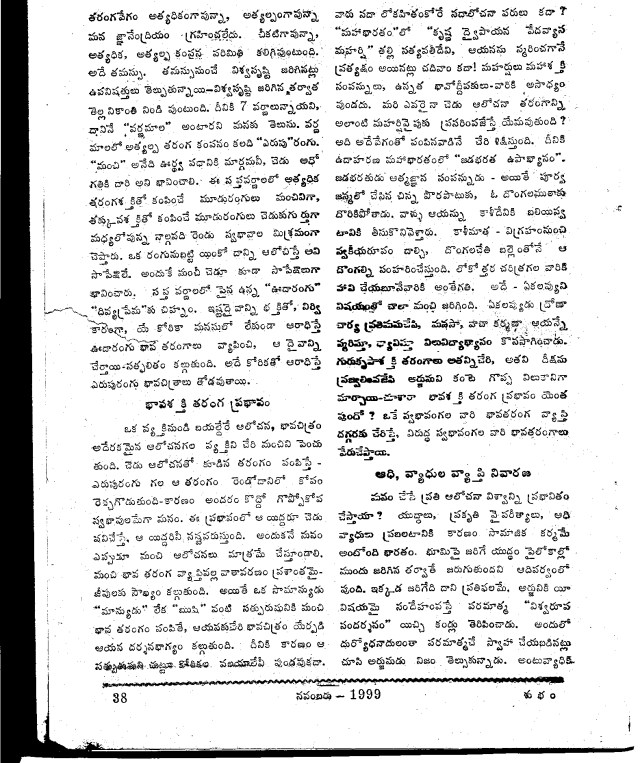 తరంగవేగం అత్యధికంగావున్నా, అత్యల్పంగావున్నా
మన జ్ఞానేంద్రియం గ్రహించలేదు. చీకటిగావున్నా,
అత్యధిక, అత్యల్ప కంపన పరిమితి కలిగివుంటుంది.
అదే తమస్సు. తమస్సునుంచే విశ్వసృష్టి జరిగినట్లు
ఉపనిషత్తులు తెల్పుతున్నాయి—విశ్వసృష్టి జరిగిన తర్వాత
తెల్లని కాంతి నిండి వుంటుంది. దీనికి 7 వర్ణాలున్నాయని,
ద్దానినే "వర్ణమాల" అంటారని మనకు తెలుసు. వర్ణ
మాలలో అత్యల్ప తరంగ కంపనం కలది "ఎరుపు"రంగు.
"మంచి" అనేది ఊర్థ్వ పథానికి మార్గమనీ, చెడు అధో
గతికి దారి అని భావించాలి. ఈ సప్తవర్ణాలలో అత్యధిక
తరంగశక్తితో కంపించే మూడురంగులు మంచివిగా,
తక్కువశక్తితో కంపించే మూడురంగులు చెడుకుగుర్తుగా
మధ్యలోవున్న నాల్గవది రెండు స్వభావాల మిశ్రమంగా
చెప్తారు. ఒక రంగుబట్టి యింకో దాన్ని ఆలోచిస్తే అవి
సాపేక్షితే. అందుకే మంచీ చెడూ కూడా సాపేక్షకంగా
భావించారు. సప్త వర్ణాలలో పైన ఉన్న "ఊదారంగు"
"దివ్యప్రేమ"కు చిహ్నం. ఇష్టదైవాన్ని భక్తితో, నిర్వి
కారంగా, యే కోరికా మనసులో లేకుండా ఆరాధిస్తే
ఊదారంగు భావ తరంగాలు వ్యాపించి, ఆ దైవాన్ని
చేర్తాయి-సత్ఫలితం కల్గుతుంది. అదే కోరికతో ఆరాధిస్తే
ఎరుపురంగు భావచిత్రాలు తోడవుతాయి.
భావశక్తి తరంగ ప్రభావం
ఒక వ్యక్తినుండి బయల్దేరే ఆలోచన, భావచిత్రం
అదేరకమైన ఆలోచనగల వ్యక్తిని చేరి మంచిని పెంచు
తుంది. చెడు ఆలోచనతో కూడిన తరంగం పంపిస్తే -
ఎరుపురంగు గల ఆ తరంగం రెండోదానిలో కోపం
రెచ్చగొడుతుంది-కారణం అందరం కొద్దో గొప్పోకోప
స్వభావులమేగా మనం. ఈ ప్రభావంలో ఆ యిద్దరూ చెడు
పనిచేస్తే, ఆ యిద్దరివీ నష్టపరుస్తుంది. అందుకనే మనం
ఎప్పుడూ మంచి ఆలోచనలు మాత్రమే చేస్తూండాలి.
మంచి భావ తరంగ వ్యాప్తివల్ల వాతావరణం ప్రశాంతమై-
జీవులకు సౌఖ్యం కల్గుతుంది. అయితే ఒక సామాన్యుడు
"మాన్యుడు" లేక "ఋషి" వంటి సత్పురుషునికి మంచి
భావ తరంగం పంపితే, ఆయనకుచేరి భావచిత్రం యేర్పడి
ఆయన దర్శనభాగ్యం కల్గుతుంది. దీనికి కారణం ఆ
సత్పురుషుని చుట్టూ కోరికల వలయాలేవీ వుండవుకదా.
వారు సదా లోకహితంకోరే సదాలోచనా పరులు కదా ?
"మహాభారతం"లో "కృష్ణ ద్వైపాయన వేదవ్యాస
మహర్షి" తల్లి సత్యవతీదేవి, ఆయనను స్మరించగానే
ప్రత్యక్షం అయినట్లు చదివాం కదా! మహర్షులు మహాశక్తి
సంపన్నులు, ఉన్నత భావోద్దీపకులు-వారికి అసాధ్యం
వుండదు. మరి ఎవరైనా చెడు ఆలోచనా తరంగాన్ని
అలాంటి మహర్షివైపుకు ప్రసరింపజేస్తే యేమవుతుంది ?
అది అదేవేగంతో పంపినవాడినే చేరి శిక్షిస్తుంది. దీనికి
ఉదాహరణ మహాభారతంలో "జడభరత ఉపాఖ్యానం".
జడభరతుడు ఆత్మజ్ఞాన సంపన్నుడు - అయితే పూర్వ
జన్మలో చేసిన చిన్న పొరపాటుకు, ఓ దొంగలముఠాకు
దొరికిపోతాడు. వాళ్ళు ఆయన్ను కాళీదేవికి బలియివ్వ
టానికి తీసుకొనివెళ్తారు. కాళీమాత - విగ్రహంనుంచి
స్వకీయరూపం దాల్చి, దొంగలచేతి బల్లెంతోనే ఆ
దొంగల్ని సంహరించేస్తుంది. లోకోత్తర చరిత్రగల వారికి
హాని చేయబూనేవారికి అంతేగతి. అదే - ఏకలవ్యుని
విషయంతో చాలా మంచి జరిగింది. ఏకలవ్యుడు ద్రోణా
చార్య ప్రతిమనుచేసి, మనసా, వాచా కర్మణా ఆయన్నే
స్మరిస్తూ, ధ్యానిస్తూ విలువిద్యాభ్యాసం కొనసాగించాడు.
గురుకృపాశక్తి తరంగాలు అతన్నిచేరి, అతని దీక్షను
ప్రజ్వలింపజేసి అర్జునుని కంటె గొప్ప విలుకానిగా
మార్చాయి-చూశారా భావశక్తి తరంగ ప్రభావం యెంత
వుందో ? ఒకే స్వభావంగల వారి భావతరంగ వ్యాప్తి
దగ్గరకు చేరిస్తే, విరుద్ధ స్వభావంగల వారి భావతరంగాలు
వేరుచేస్తాయి.
ఆధి, వ్యాధుల వ్యాప్తి నివారణ
మనం చేసే ప్రతి ఆలోచనా విశ్వాన్ని ప్రభావితం
చేస్తాయా ? యుద్ధాలు, ప్రకృతి వైపరీత్యాలు, ఆధి
వ్యాధులు ప్రబలటానికి కారణం సామాజిక కర్మమే
అంటోంది భారతం. భూమిపై జరిగే యుద్ధం పైలోకాల్లో
ముందు జరిగిన తర్వాతే జరుగుతుందని ఆదిపర్వంలో
వుంది. ఇక్కడ జరిగేది దాని ప్రతిఫలమే. అర్జునికి యీ
విషయమై సందేహంవస్తే పరమాత్మ "విశ్వరూప
సందర్శనం" యిచ్చి కండ్లు తెరిపించాడు. అందులో
దుర్యోధనాదులంతా పరమాత్మచే స్వాహా చేయబడినట్లు
చూసి అర్జునుడు నిజం తెల్సుకున్నాడు. అంటువ్యాధికి
38
నవంబరు — 1999
శుభం